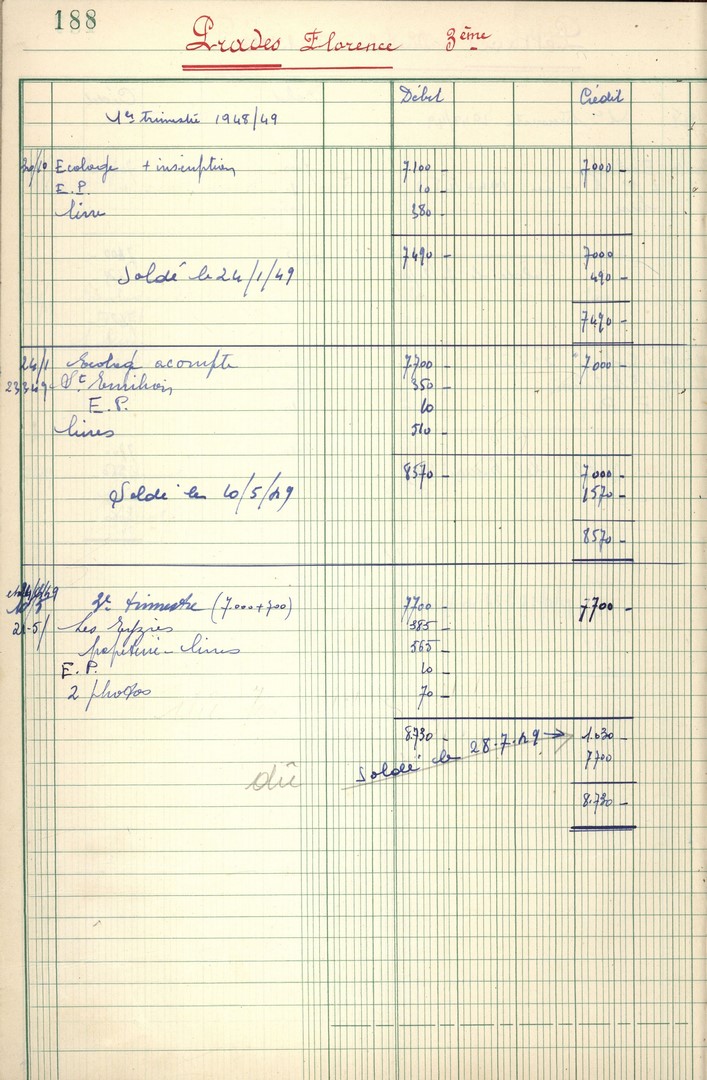 188
Prades Florence 3ème
Débit Crédit
1er trimestre 1948/49
30/10 Ecolage + inscription 7.100 - 7000 -
E.P. 10 -
livre 380 -
7490 - 7000
Soldé le 24/1/49 490 -
7490 -
24/1 Ecolage acompte 7700 - 7000 -
23 3 49 St Emilion 350 -
E.P. 10
livres 510 -
8570 - 7000 -
Soldé le 10/5/49 1570 -
8570 -
10/5 3e trimestre (7.000+700) 7700 - 7700 -
21-5/ Les Eyzies 385 -
papeterie - livres 565
E.P. 10 -
2 photos 70 -
8.730 - 1.030 -
Soldé le 28.7.49 → 7700
dû
8.730 -